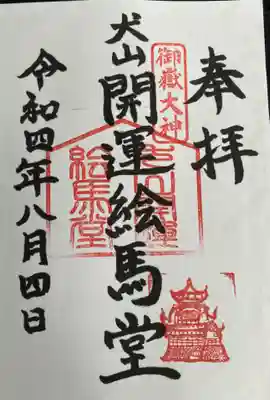 奉拝
御嶽大神
犬山開運絵馬堂
絵馬堂
令和四年八月四日